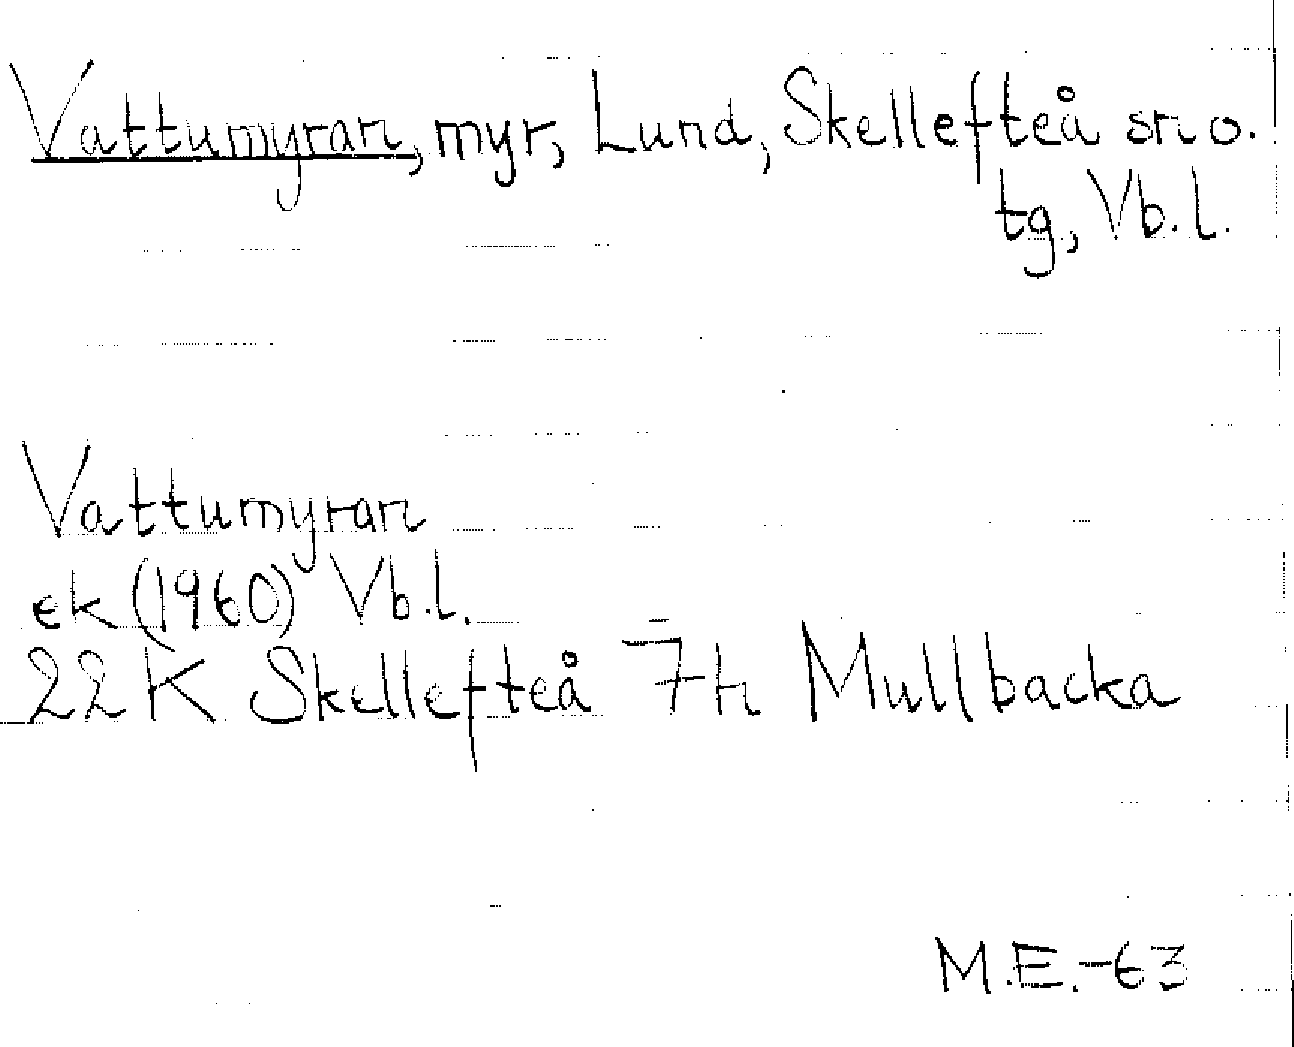 Vattumyran, myr, Lund, Skellefteå sn o.
tg, Vb.l.
Vattumyran
ek (1960) Vb.l.
22K Skellefteå 7h Mullbacka
M.E.-63